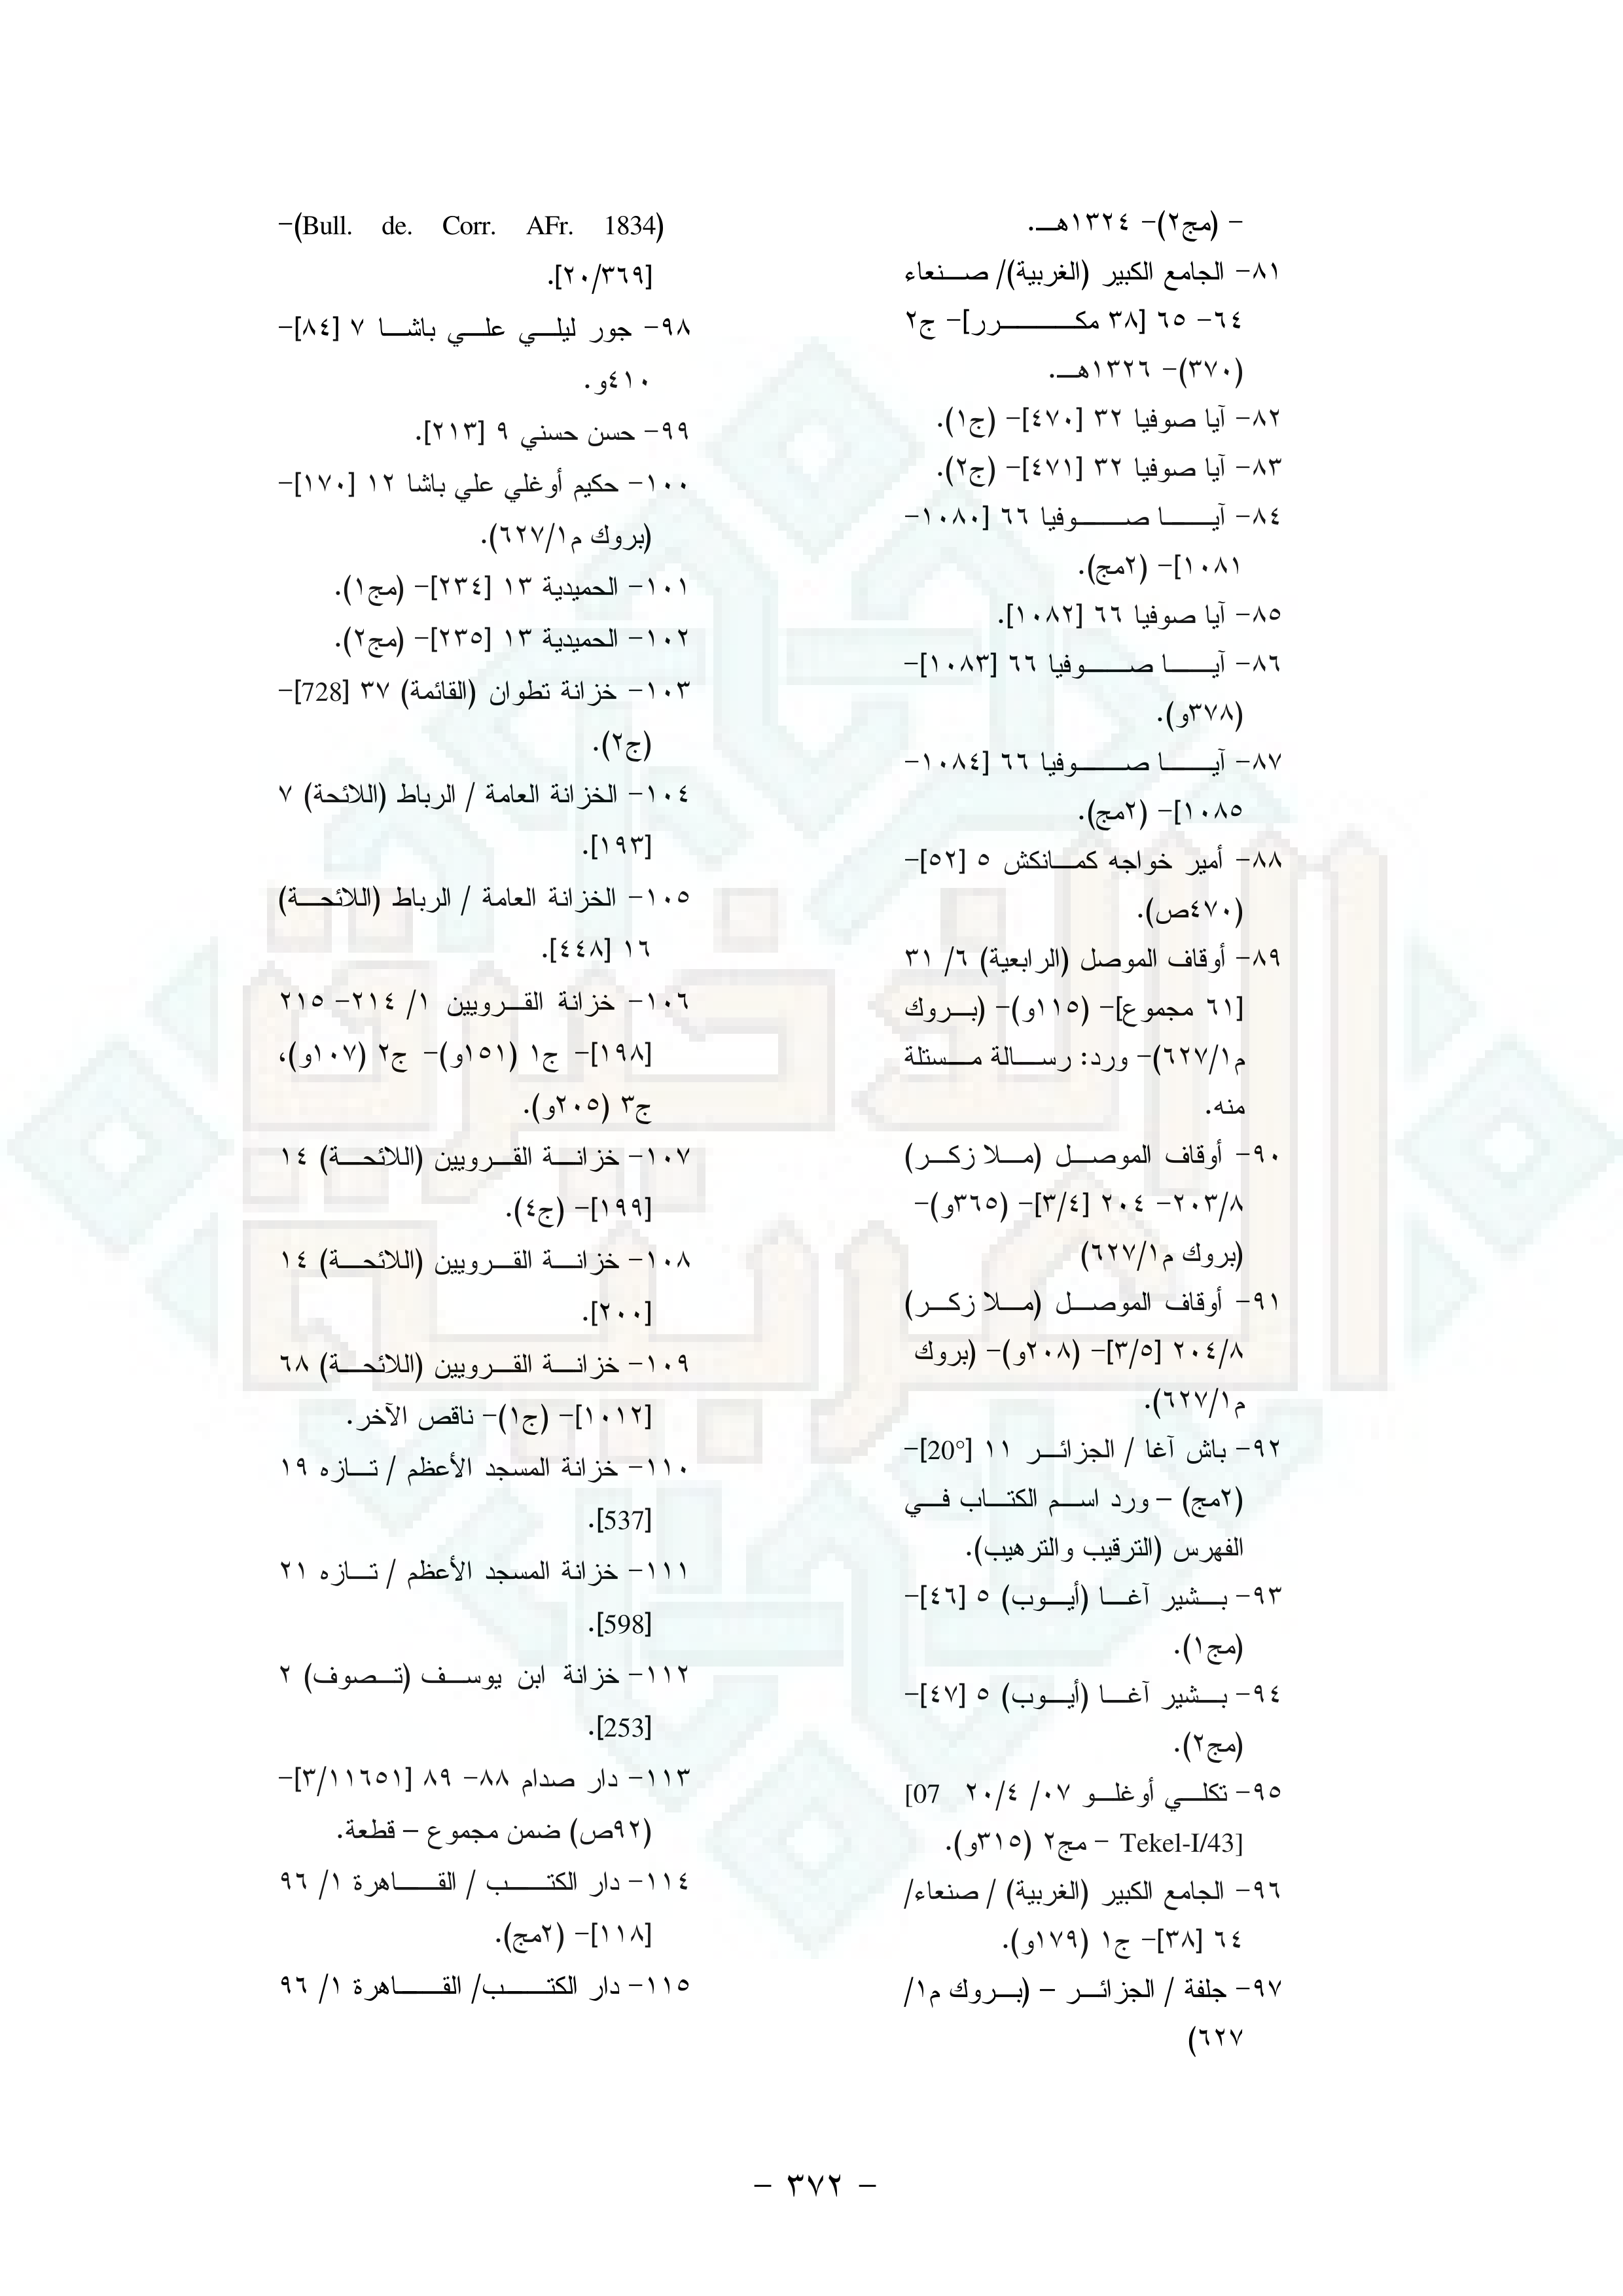 - (مج٢)- ١٣٢٤هـ.
٨١- الجامع الكبير (الغربية)/ صنعاء
٦٤- ٦٥ [٣٨ مكرر]- ج٢
(٣٧٠)- ١٣٢٦هـ.
٨٢- آيا صوفيا ٣٢ [٤٧٠]- (ج١).
٨٣- آيا صوفيا ٣٢ [٤٧١]- (ج٢).
٨٤- آيا صوفيا ٦٦ [١٠٨٠-
١٠٨١]- (٢مج).
٨٥- آيا صوفيا ٦٦ [١٠٨٢].
٨٦- آيا صوفيا ٦٦ [١٠٨٣]-
(٣٧٨و).
٨٧- آيا صوفيا ٦٦ [١٠٨٤-
١٠٨٥]- (٢مج).
٨٨- أمير خواجه كمانكش ٥ [٥٢]-
(٤٧٠ص).
٨٩- أوقاف الموصل (الرابعية) ٦/ ٣١
[٦١ مجموع]- (١١٥و)- (بروك
م١/٦٢٧)- ورد: رسالة مستلة
منه.
٩٠- أوقاف الموصل (ملا زكر)
٨/٢٠٣- ٢٠٤ [٣/٤]- (٣٦٥و)-
(بروك م١/٦٢٧)
٩١- أوقاف الموصل (ملا زكر)
٨/٢٠٤ [٣/٥]- (٢٠٨و)- (بروك
م١/٦٢٧).
٩٢- باش آغا / الجزائر ١١ [20°]-
(٢مج) – ورد اسم الكتاب في
الفهرس (الترقيب والترهيب).
٩٣- بشير آغا (أيوب) ٥ [٤٦]-
(مج١).
٩٤- بشير آغا (أيوب) ٥ [٤٧]-
(مج٢).
٩٥- تكلي أوغلو ٠٧/ ٢٠/٤ [07
Tekel-I/43] – مج٢ (٣١٥و).
٩٦- الجامع الكبير (الغربية) / صنعاء/
٦٤ [٣٨]- ج١ (١٧٩و).
٩٧- جلفة / الجزائر – (بروك م١/
٦٢٧)
(Bull. de. Corr. AFr. 1834)-
[٢٠/٣٦٩].
٩٨- جور ليلي علي باشا ٧ [٨٤]-
٤١٠و.
٩٩- حسن حسني ٩ [٢١٣].
١٠٠- حكيم أوغلي علي باشا ١٢ [١٧٠]-
(بروك م١/٦٢٧).
١٠١- الحميدية ١٣ [٢٣٤]- (مج١).
١٠٢- الحميدية ١٣ [٢٣٥]- (مج٢).
١٠٣- خزانة تطوان (القائمة) ٣٧ [728]-
(ج٢).
١٠٤- الخزانة العامة / الرباط (اللائحة) ٧
[١٩٣].
١٠٥- الخزانة العامة / الرباط (اللائحة)
١٦ [٤٤٨].
١٠٦- خزانة القرويين ١/ ٢١٤- ٢١٥
[١٩٨]- ج١ (١٥١و)- ج٢ (١٠٧و)،
ج٣ (٢٠٥و).
١٠٧- خزانة القرويين (اللائحة) ١٤
[١٩٩]- (ج٤).
١٠٨- خزانة القرويين (اللائحة) ١٤
[٢٠٠].
١٠٩- خزانة القرويين (اللائحة) ٦٨
[١٠١٢]- (ج١)- ناقص الآخر.
١١٠- خزانة المسجد الأعظم / تازه ١٩
[537].
١١١- خزانة المسجد الأعظم / تازه ٢١
[598].
١١٢- خزانة ابن يوسف (تصوف) ٢
[253].
١١٣- دار صدام ٨٨- ٨٩ [٣/١١٦٥١]-
(٩٢ص) ضمن مجموع – قطعة.
١١٤- دار الكتب / القاهرة ١/ ٩٦
[١١٨]- (٢مج).
١١٥- دار الكتب/ القاهرة ١/ ٩٦
- ٣٧٢ -